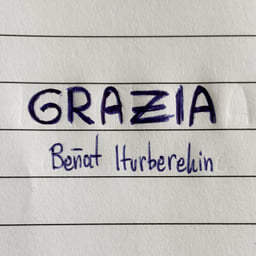 GRAZIA
Beñat Iturberehin